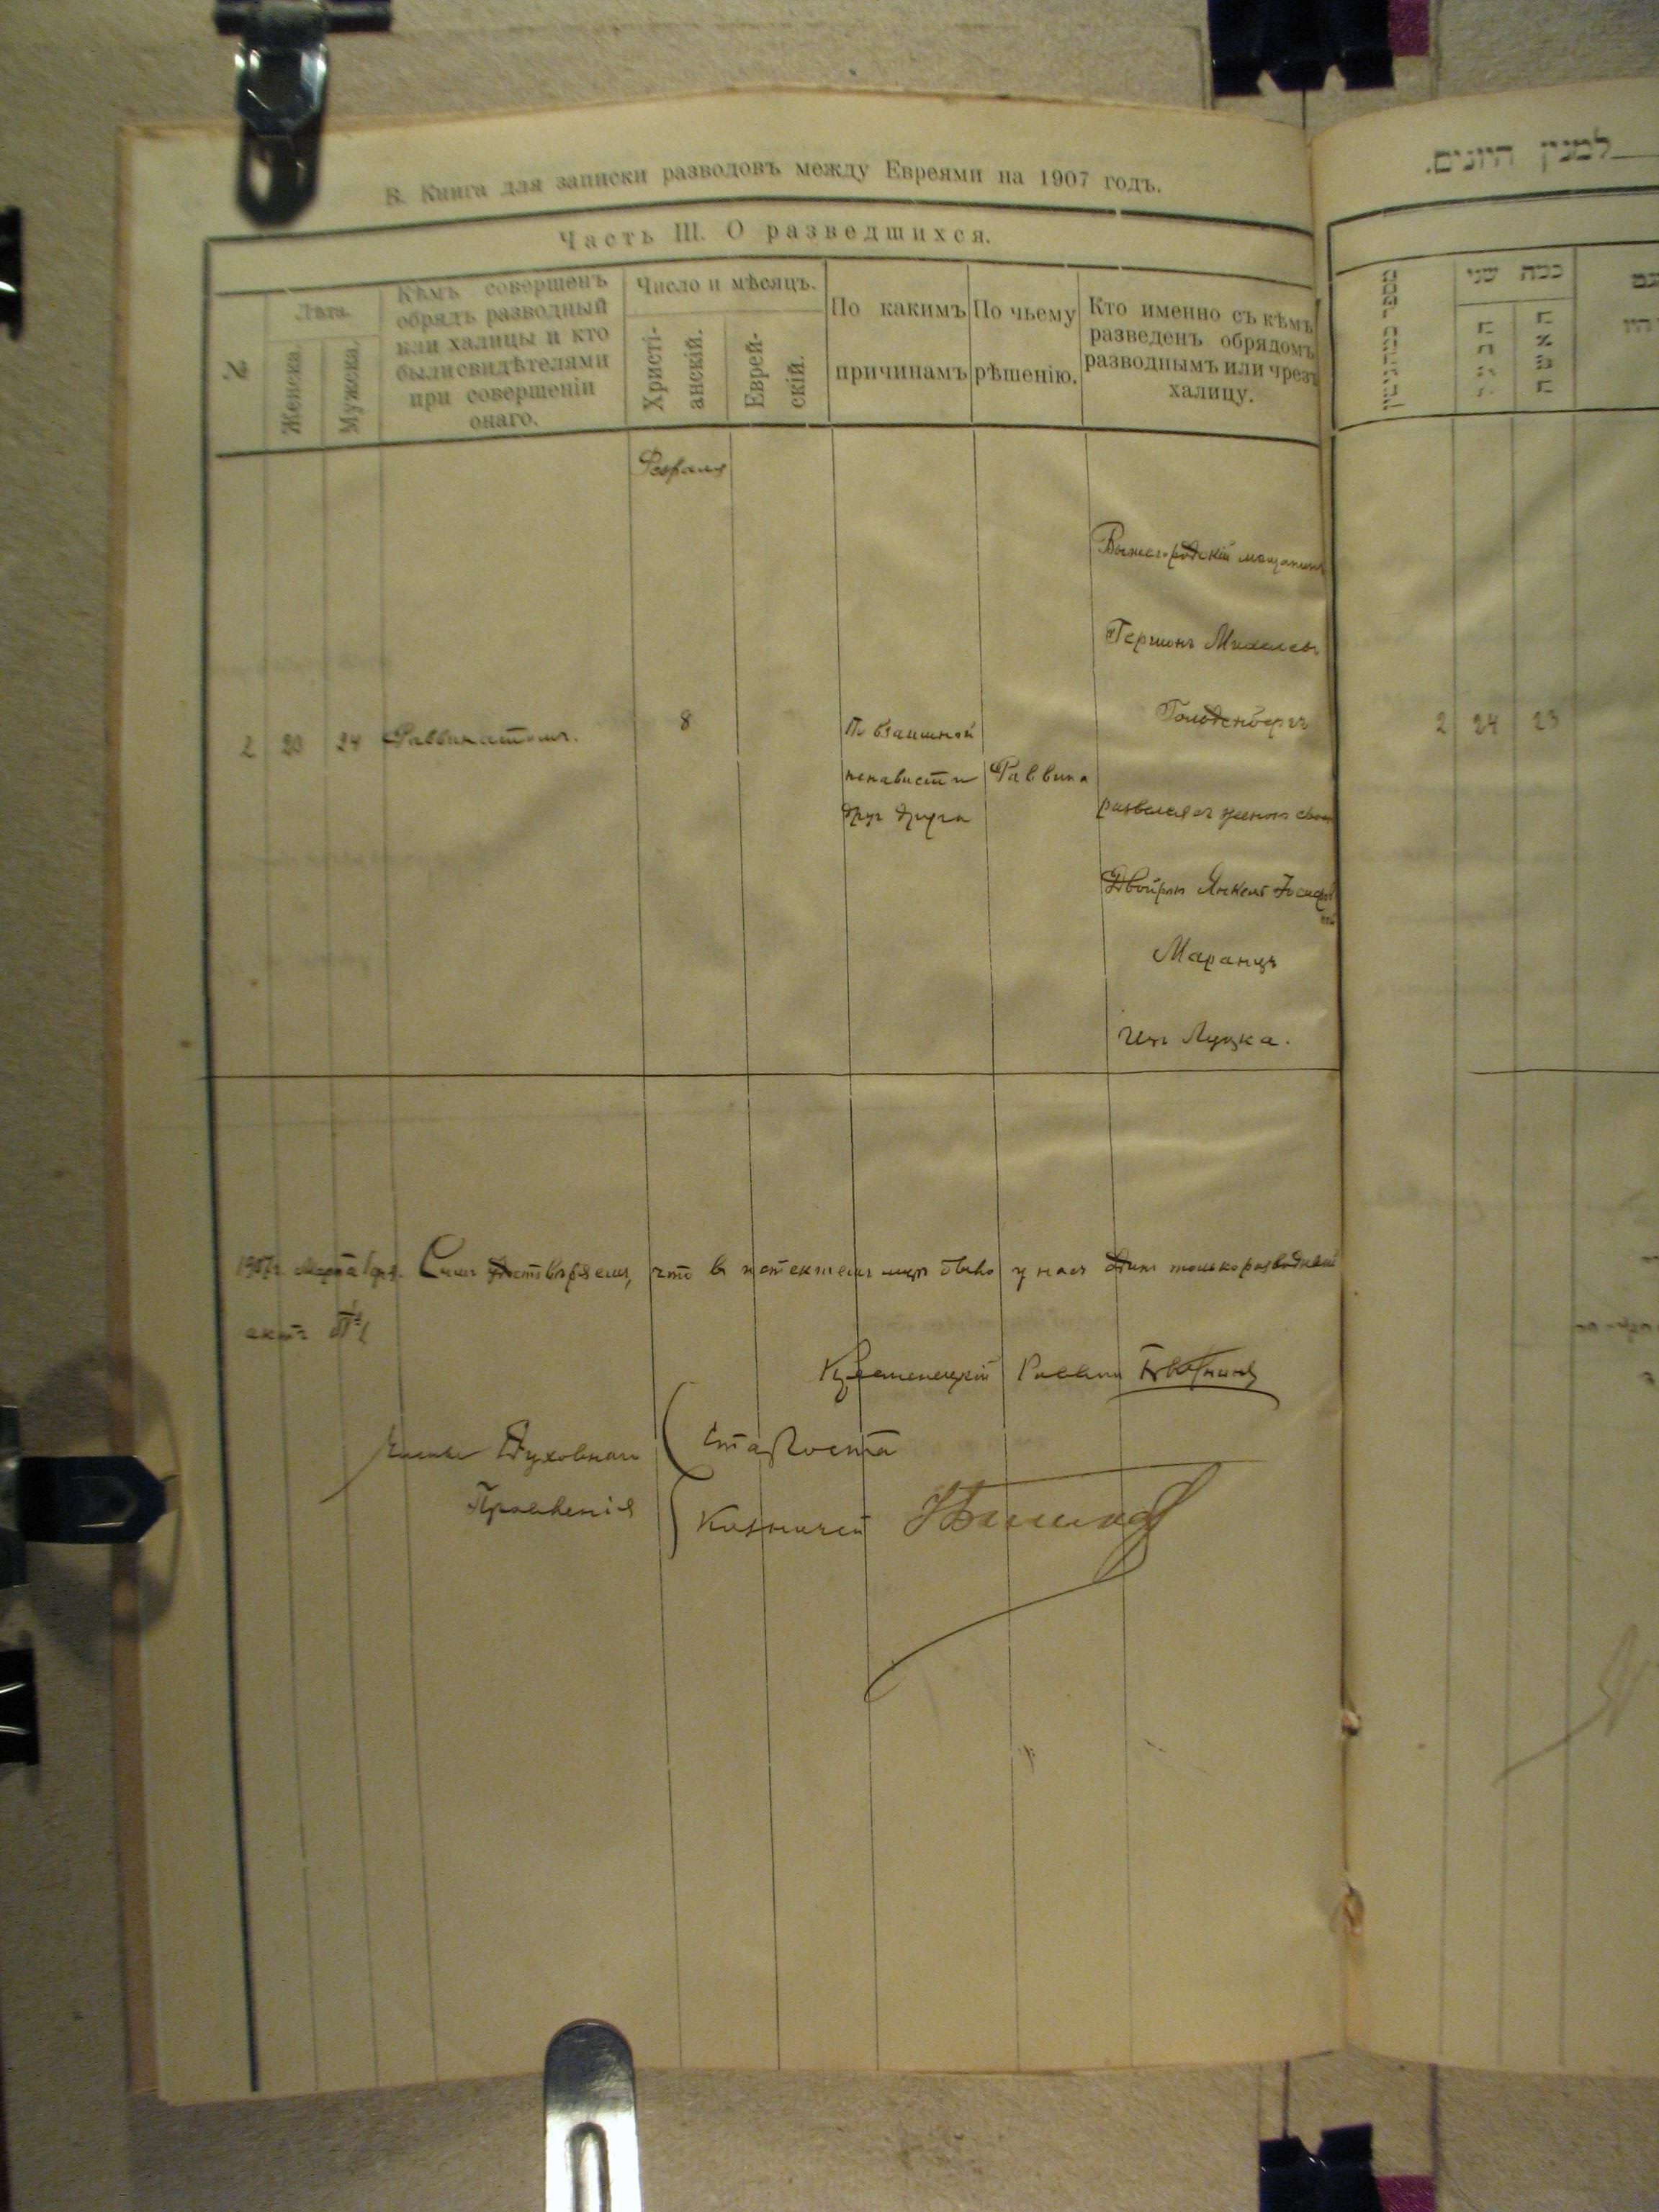 В. Книга для записки разводовъ между Евреями на 1907 годъ.
Часть III. О разведшихся.
№
Лѣта.
Женска.
Мужска.
Кѣмъ совершенъ
обрядъ разводный
или халицы и кто
были свидѣтелями
при совершеніи
онаго.
Число и мѣсяцъ.
Христі-
анскій.
Еврей-
скій.
По какимъ
причинамъ
По чьему
рѣшенію.
Кто именно съ кѣмъ
разведенъ обрядомъ
разводнымъ или чрезъ
халицу.
Февраля
2 23 24 Раввинатомъ.
8
По взаимной
ненависти
другъ друга
Раввина
Вышегородскій мещанинъ
Гершонъ
Гольденбергъ
развелся съ женою своей
Двойрою Янкель
Маранцъ
изъ Луцка.
1907 г. Марта 1 дня. Симъ удостовѣряемъ, что въ истекшемъ м-цѣ было у насъ одинъ только разводный
актъ №
Кременецкій Раввинъ
Члены Духовнаго
Правленія
Староста
Казначей
למנין היונים.
מספר
ככה שני
האשה
2 24 23